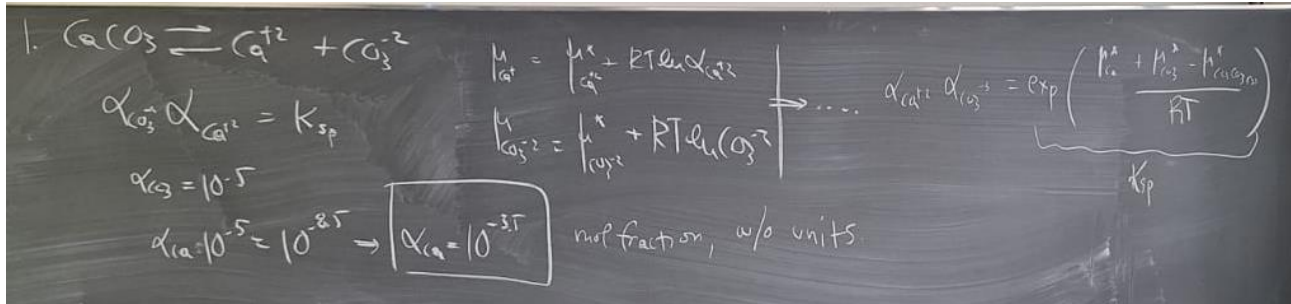 1. CaCO₃ ⇌ Ca⁺² + CO₃⁻²
α_CO₃⁻² α_Ca⁺² = K_sp
α_CO₃ = 10⁻⁵
α_Ca · 10⁻⁵ = 10⁻⁸·⁵ ⇒ α_Ca = 10⁻³·⁵ mol fraction, w/o units.
μ_Ca⁺ = μ*_Ca⁺² + RT ln α_Ca⁺²
μ_CO₃⁻² = μ*_CO₃⁻² + RT ln CO₃⁻²
⇒ ..... α_Ca⁺² α_CO₃⁻² = exp( (μ*_Ca + μ*_CO₃ - μ*_CaCO₃) / RT )
K_sp